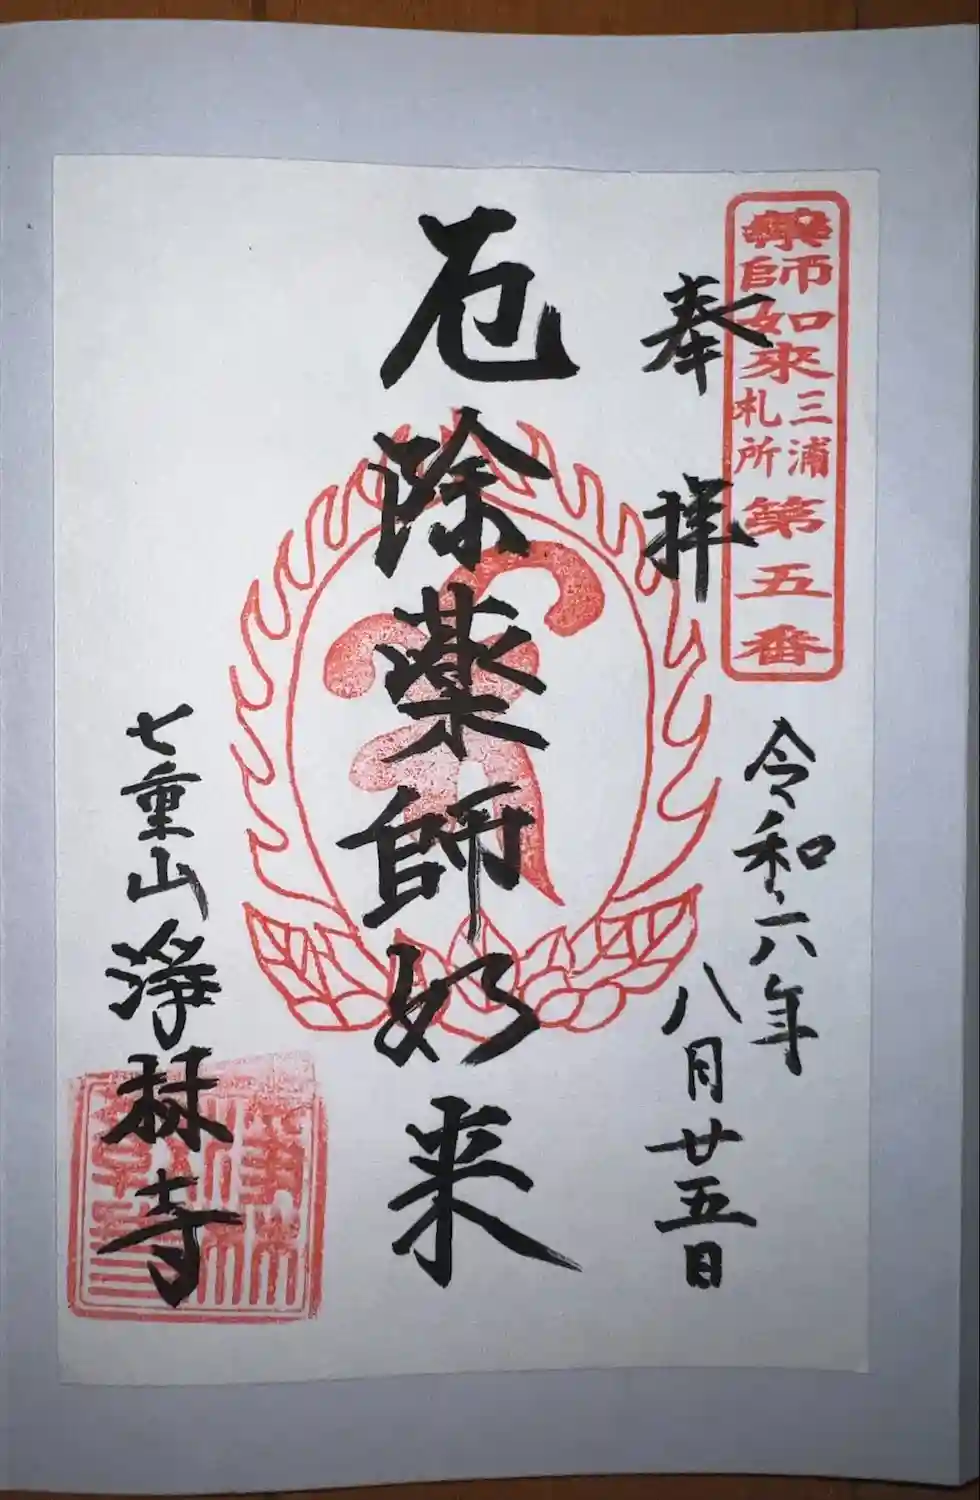 薬師如來三浦札所第五番
奉拝
令和六年
八月廿五日
厄除薬師如来
七重山浄林寺